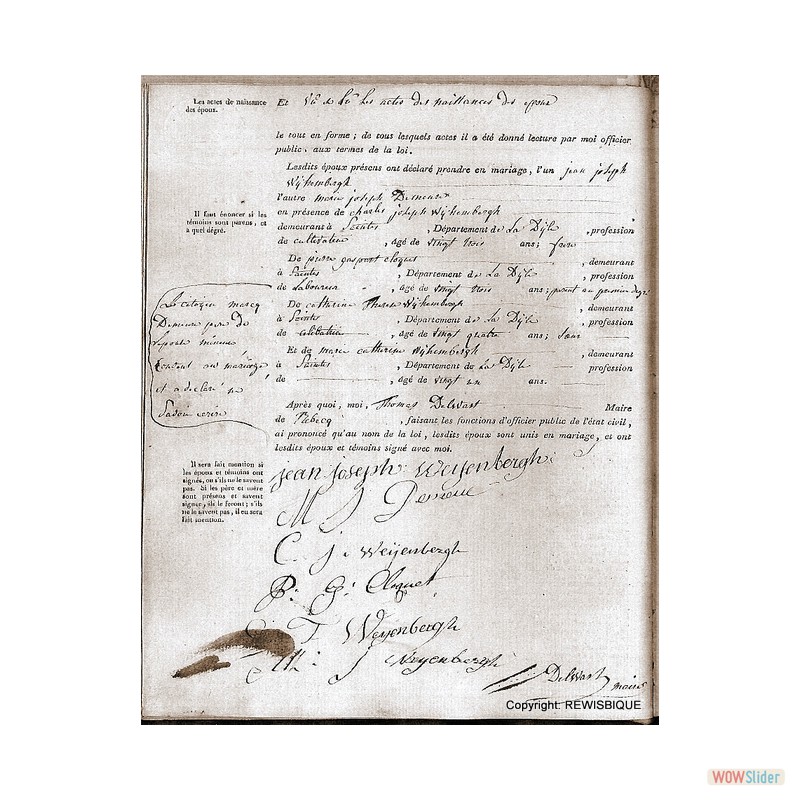 Les actes de naissance
des époux.
Et Vû les actes des naissances des époux
le tout en forme ; de tous lesquels actes il a été donné lecture par moi officier
public, aux termes de la loi.
Lesdits époux présens ont déclaré prendre en mariage, l'un jean joseph
Wijhembergh
l'autre marie joseph Demeure
Il faut énoncer si les
témoins sont parens, et
à quel dégré.
en présence de charles joseph Wijhembergh
demeurant à Saintes , Département de La Dijle , profession
de cultivateur , agé de vingt trois ans; frere
De pierre gaspart cloquet , demeurant
à Saintes , Département de La Dijle , profession
de Laboureur , agé de vingt trois ans; parent au premier degré
De catherine Therese Wijhembergh , demeurant
à Saintes , Département de La Dijle , profession
de , agé de vingt quatre ans; Sœur
Et de marie catherine Wijhembergh , demeurant
à Saintes , Département de La Dijle profession
de , agé de vingt un ans.
Le citoyen
Demeure pere de
au mariage
et a déclaré ne
Savoir ecrire
Après quoi, moi, Thomas DelWast Maire
de Rebecq , faisant les fonctions d'officier public de l'état civil,
ai prononcé qu'au nom de la loi, lesdits époux sont unis en mariage, et ont
lesdits époux et témoins signé avec moi.
Il sera fait mention si
les époux et témoins ont
signés, ou s'ils ne le savent
pas. Si les père et mère
sont présens et savent
signer, ils le feront ; s'ils
ne le savent pas, il en sera
fait mention.
jean joseph Weyenbergh
M J Demeure
C. j. Weÿenbergh
P: G: Cloquet
C T Weyenbergh
M: J Weyenbergh
DelWast maire
Copyright: REWISBIQUE
WOWSlider